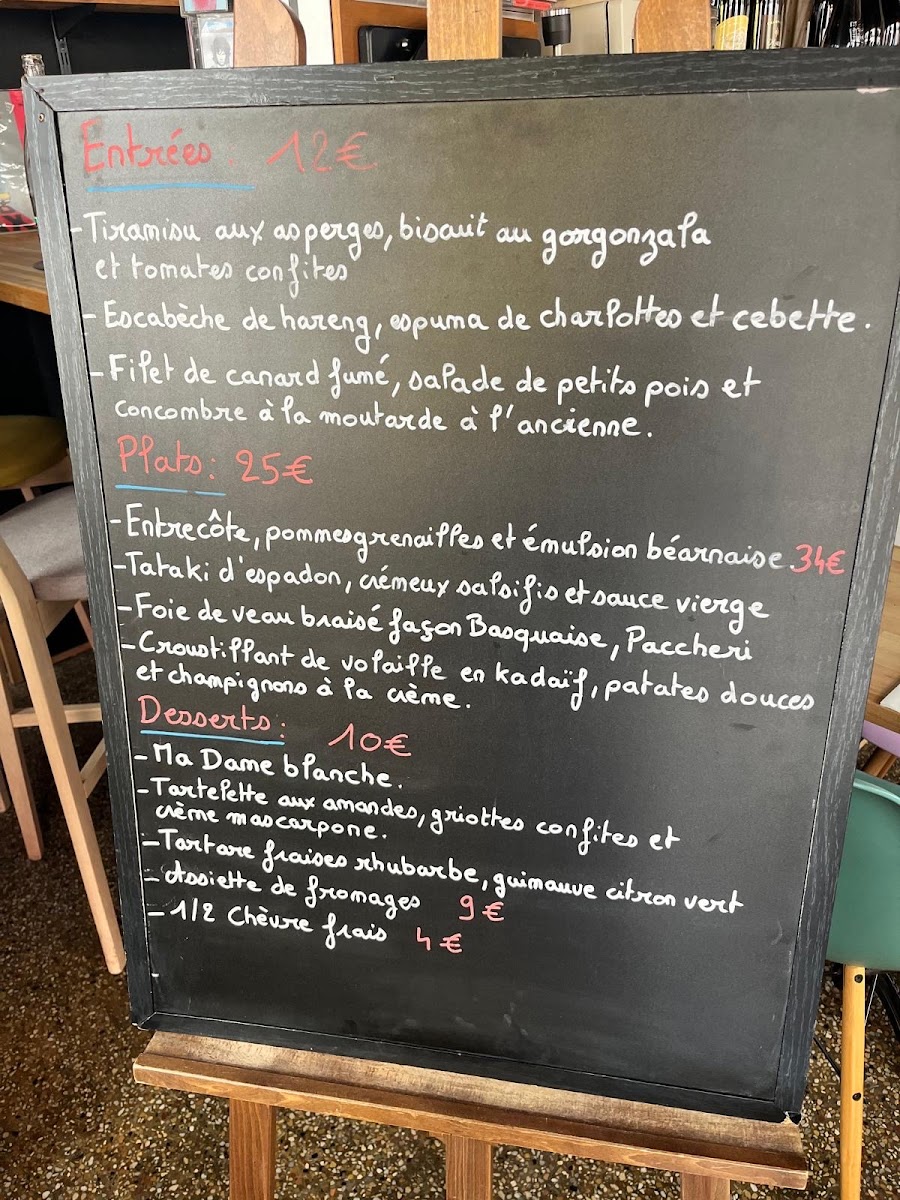 Entrées : 12€
-Tiramisu aux asperges, biscuit au gorgonzala
et tomates confites
-Escabèche de hareng, espuma de charlottes et cebette.
-Filet de canard fumé, salade de petits pois et
concombre à la moutarde à l'ancienne.
Plats : 25€
-Entrecôte, pommes grenailles et émulsion béarnaise. 34€
-Tataki d'espadon, crémeux salsifis et sauce vierge
-Foie de veau braisé façon Basquaise, Paccheri
-Croustillant de volaille en kadaïf, patates douces
et champignons à la crème.
Desserts : 10€
-Ma Dame blanche.
-Tartelette aux amandes, griottes confites et
crème mascarpone.
-Tartare fraises rhubarbe, guimauve citron vert
- Assiette de fromages 9€
- 1/2 Chèvre frais 4€
-